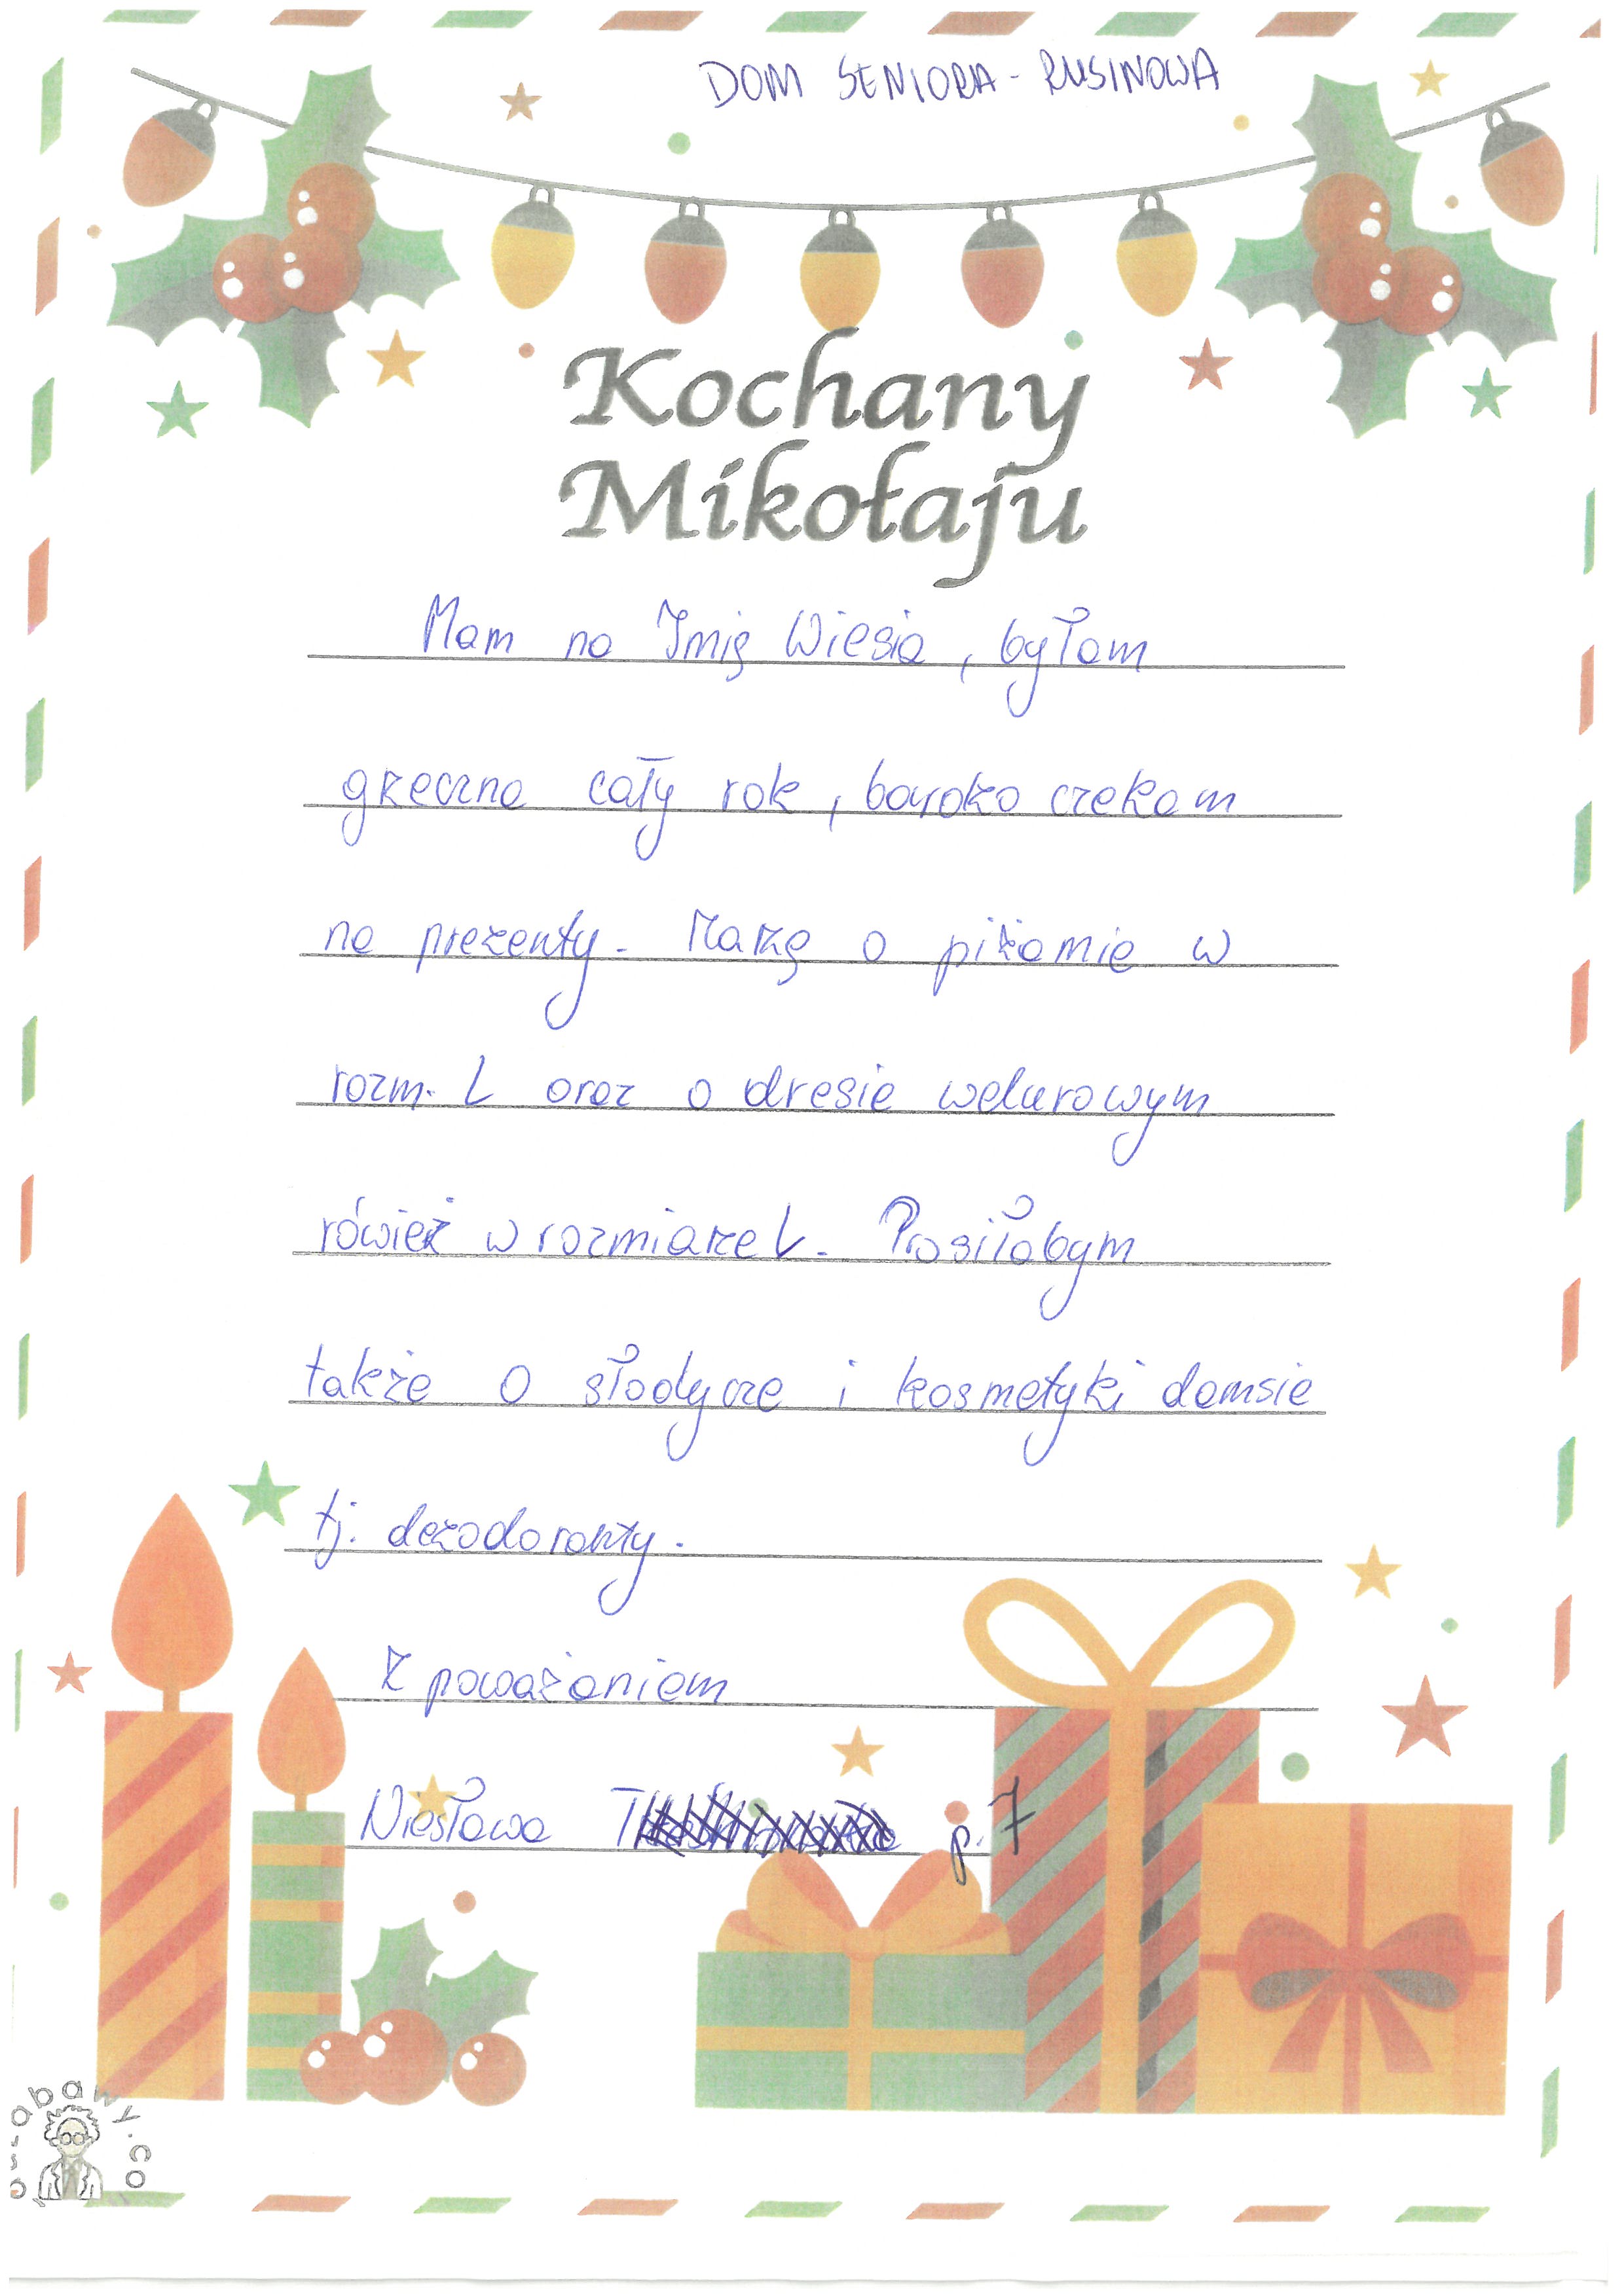 DOM SENIORA - RUSINOWA
Kochany
Mikołaju
Mam na Imię Wiesia, byłam
grzeczna cały rok, bardzo czekam
na prezenty. Marzę o piżamie w
rozm. L oraz o dresie welurowym
rówież w rozmiarze L. Prosiłabym
także o słodycze i kosmetyki damsie
tj. dezodoranty.
Z poważaniem
Wiesława p. 7